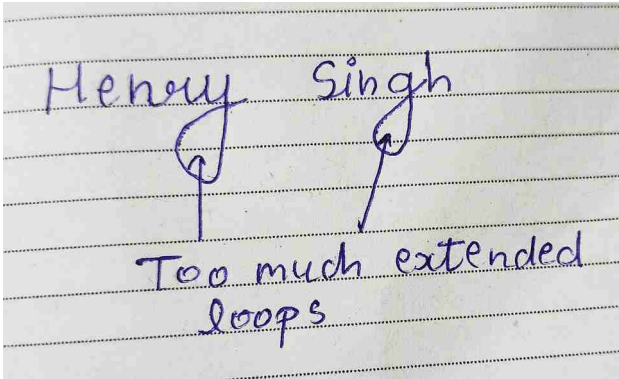 Henry Singh
Too much extended
loops